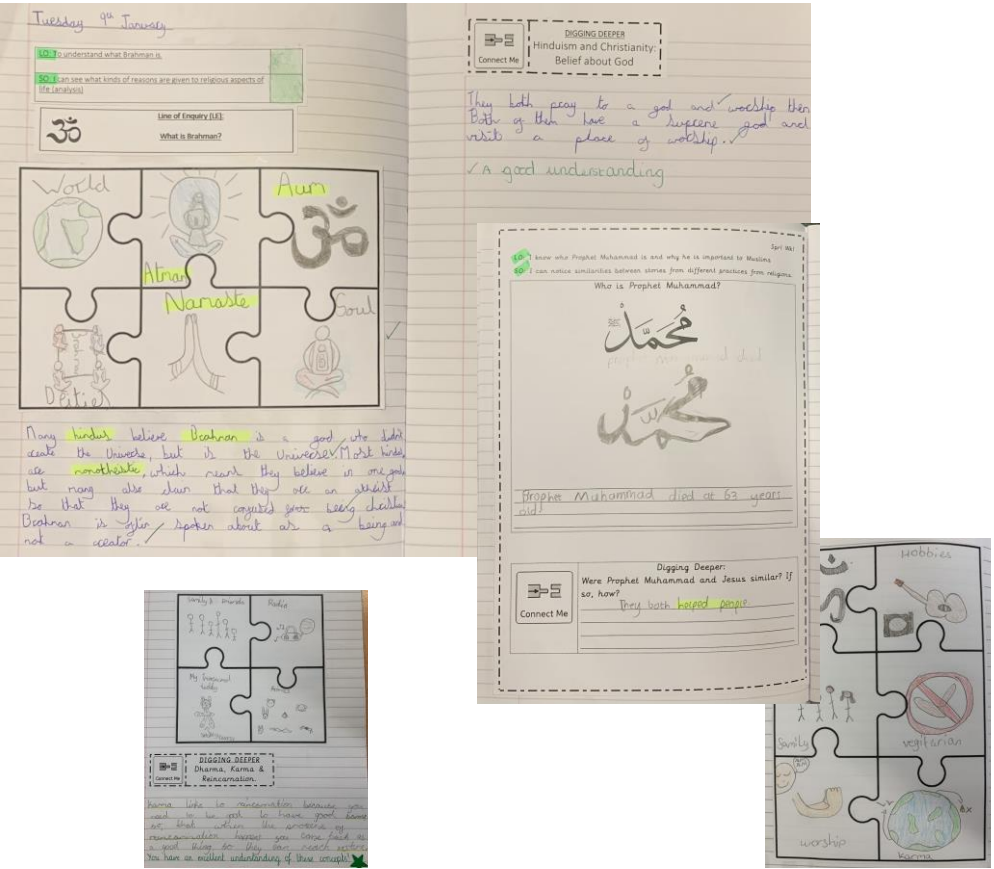 Tuesday 9th January
LO: To understand what Brahman is.
SO: I can see what kinds of reasons are given to religious aspects of
life (analysis)
Line of Enquiry (LE):
What is Brahman?
ॐ
World
Atman
Aum
ॐ
Brahman
Deities
Namaste
Soul
Many hindus believe Brahman is a god who didn't
create the Universe, but is the Universe. Most hindus
are monotheistic, which means they believe in one god
but many also claim that they are an atheist
so that they are not being
Brahman is often spoken about as a being and
not a creator.
Connect Me
DIGGING DEEPER
Hinduism and Christianity:
Belief about God
They both pray to a god and worship them
Both of them have a supreme god and
visit a place of worship.
A good understanding
LO: I know who Prophet Muhammad is and why he is important to Muslims
SO: I can notice similarities between stories from different practices from religions.
Who is Prophet Muhammad?
ﷺ
مُحَمَّدْ
محمد
Prophet Muhammad died at 63 years
old
Connect Me
Digging Deeper:
Were Prophet Muhammad and Jesus similar? If
so, how?
They both helped people
family
Connect Me
DIGGING DEEPER
Dharma, Karma &
Reincarnation.
karma links to reincarnation because you
need to be good to have good
so that when the process of
reincarnation you come back as
a good thing so they can reach
You have an excellent understanding of these concepts!
Hobbies
family
vegitarian
worship
karma